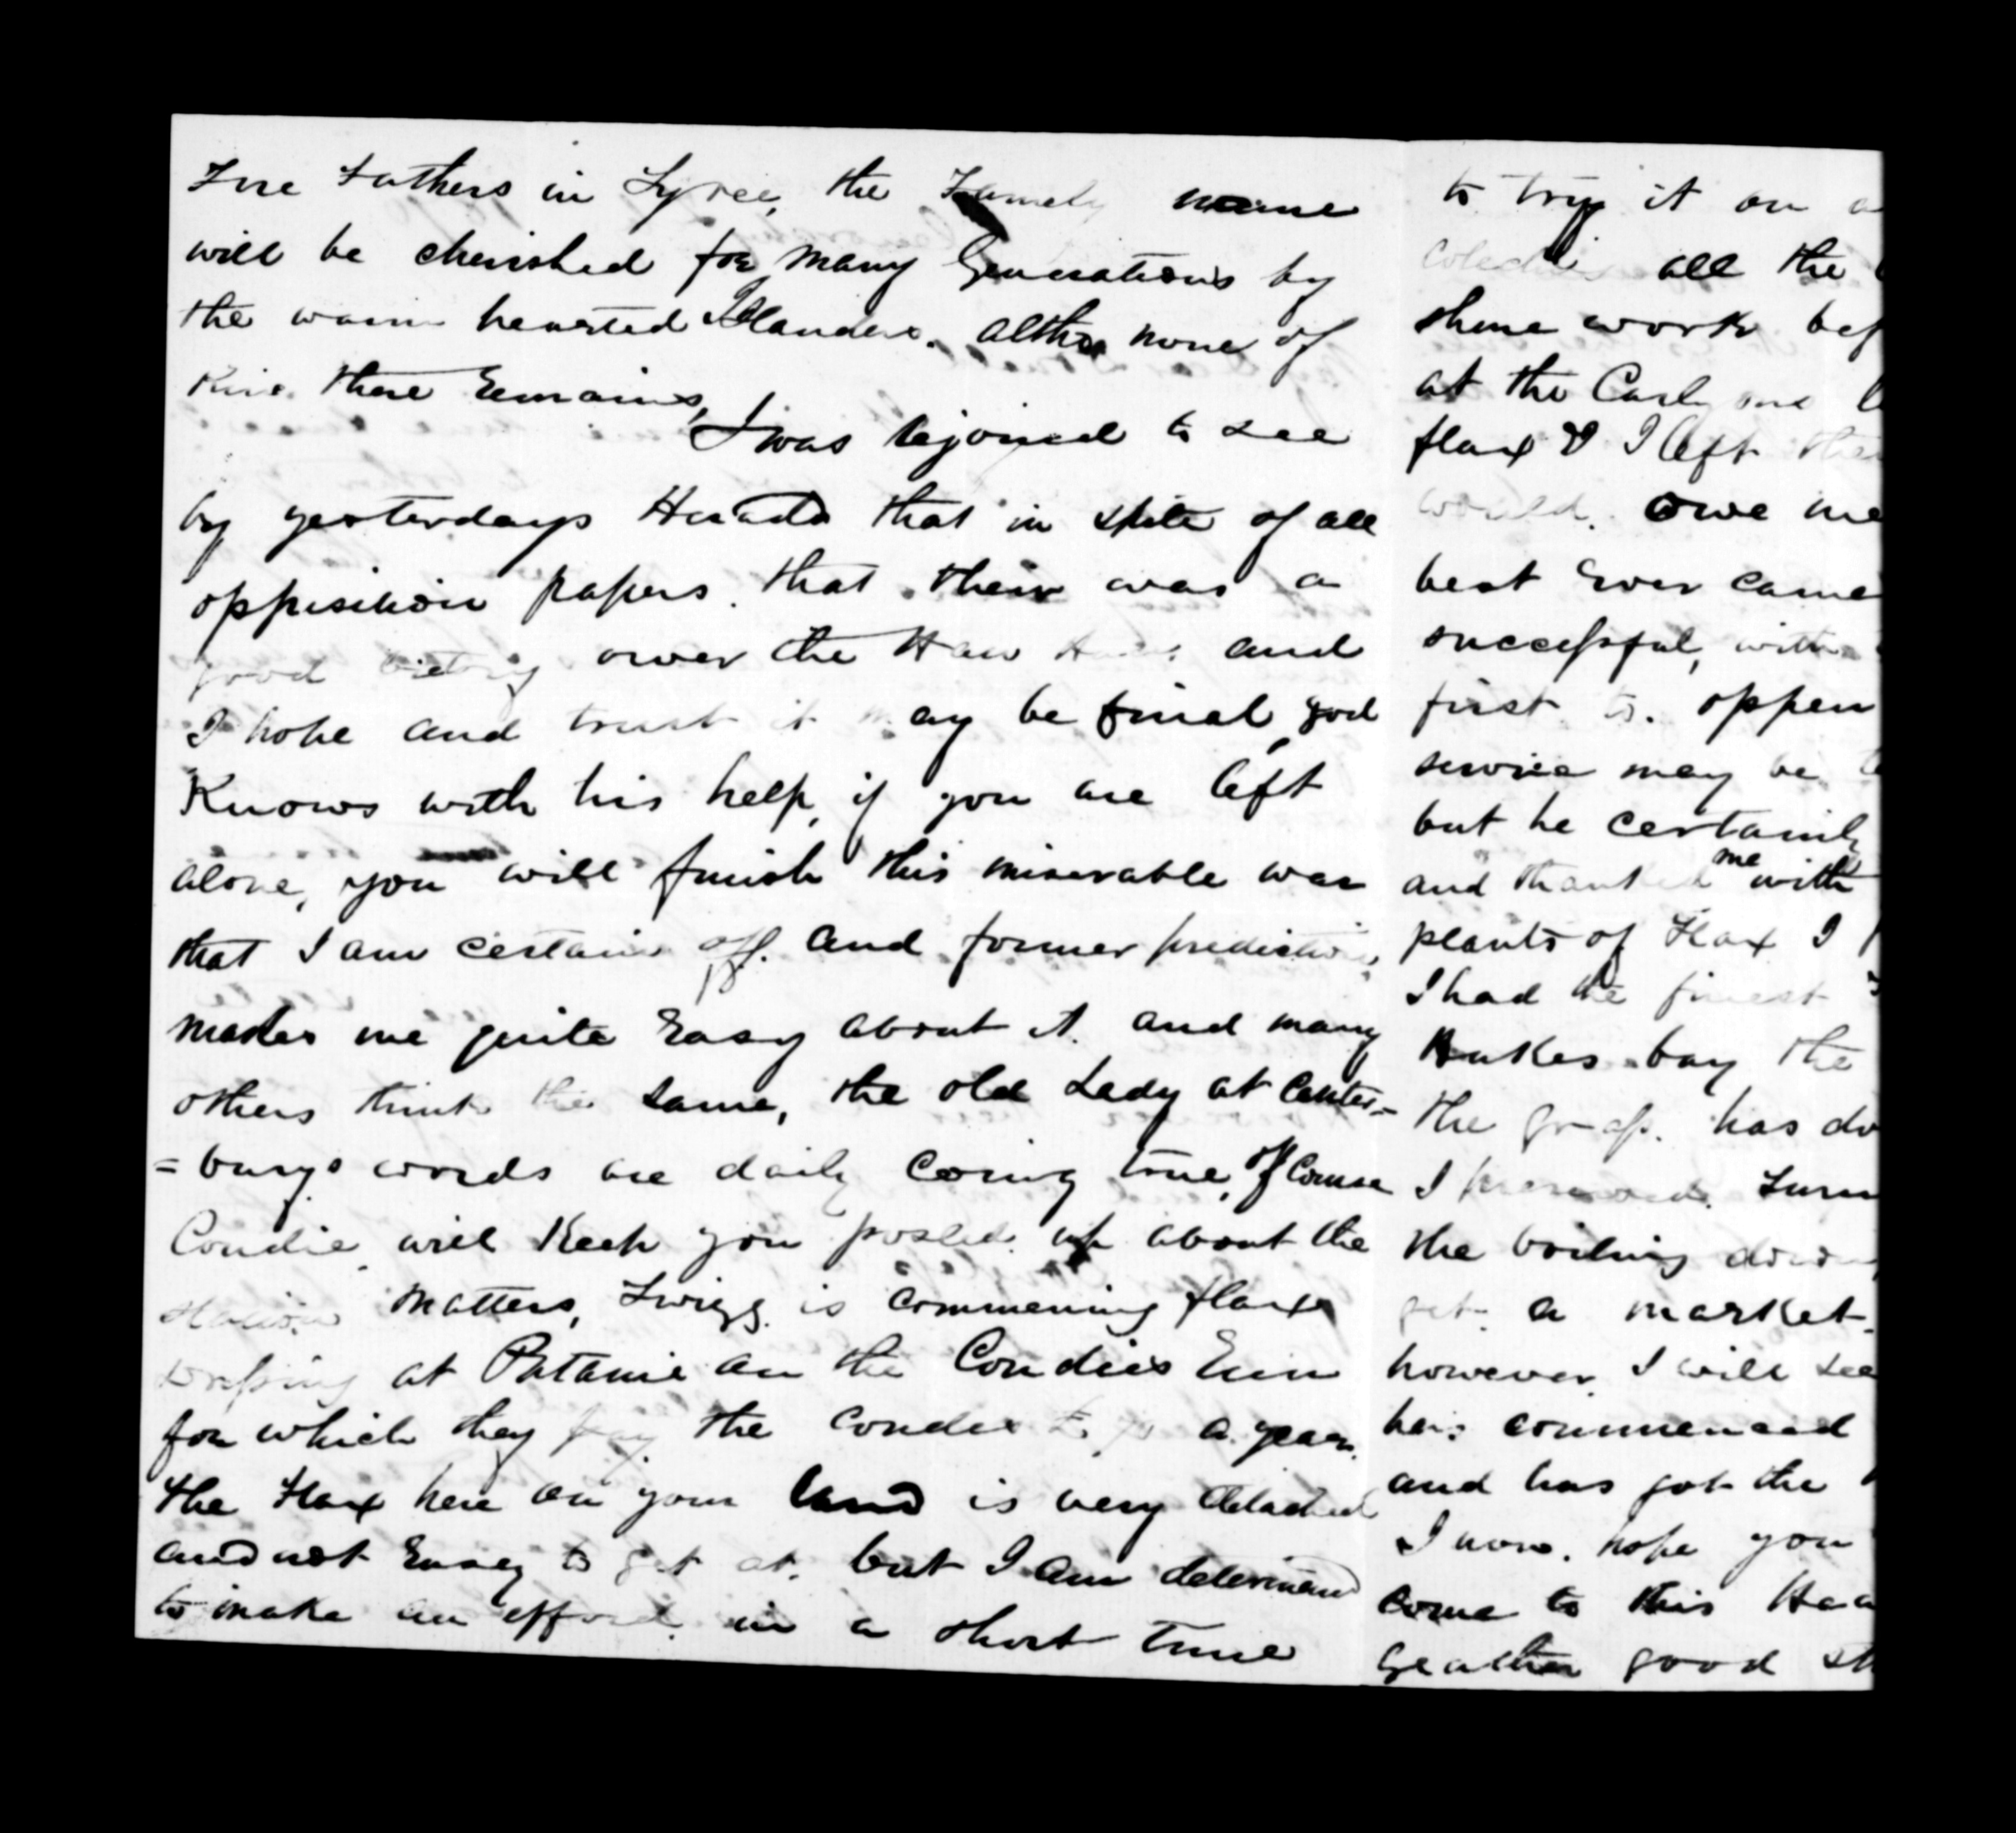 Fore Fathers in Tyree, the Family name
will be cherished for many Generations by
the warm hearted Islanders. altho none of
Kin there Remains,
I was Rejoiced to see
by yesterdays Herald that in spite of all
opposition papers. that their was a
good victory over the Hau Haus and
I hope and trust it may be final, god
Knows with his help, if you are left
alone, you will finish this miserable war
that I am certain off. and former predictions,
makes me quite Easy about it. and many
others think the same, the old Lady at Canter=
=burys words are daily coming true, Of Course
Condie, will Keep you posted up about the
Station matters, Twigg is commencing flax
dressing at Patanie on the Condies Run
for which they pay the Condie a year.
the Flax here on your land is very detached
and not Easey to get at. but I am determined
to make an efford in a short time
to try it on
all the
shine work bef
at the
flax & I left
would. owe me
best Ever came
successful, with
first to. oppen
service may be
but he certainly
and thanked me with
plants of Flax I
I had the finest
Hakes bay the
the grass. has do
I
the boiling down
get a market.
however, I will see
has commenced
and has got the
I now. hope you
come to this
geather good